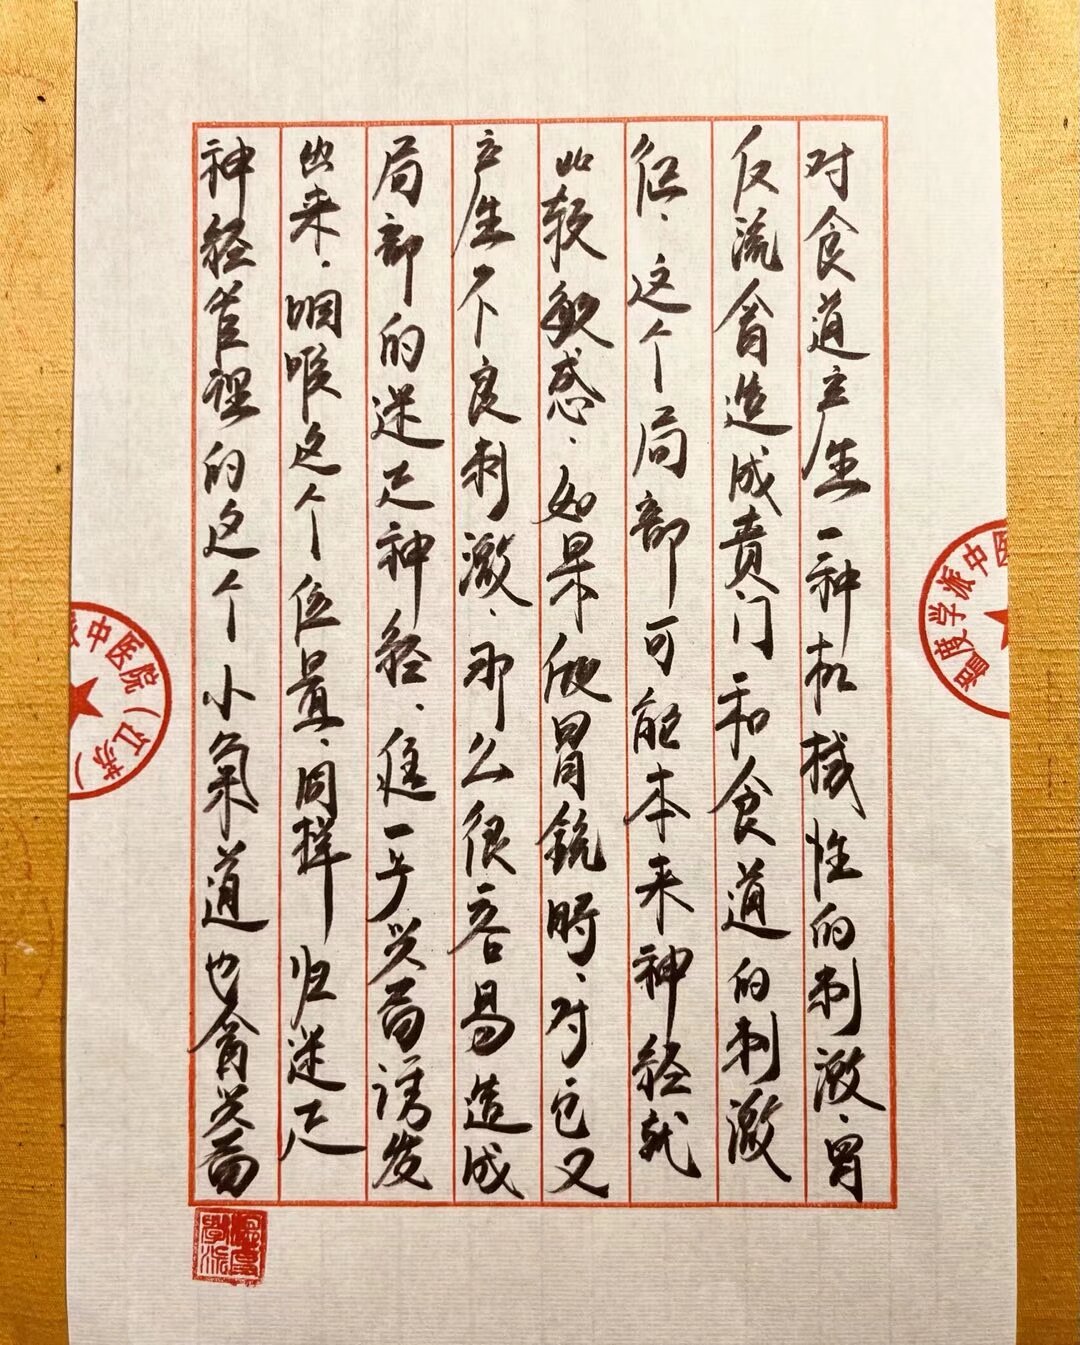 对食道产生一种机械性的刺激、胃
反流会造成贲门和食道的刺激
但、这个局部可能本来神经就
比较敏感、如果做胃镜时、对它又
产生不良刺激、那么很容易造成
局部的迷走神经、进一步兴奋诱发
出来、咽喉这个位置、同样归迷走
神经管理的这个小气道也会兴奋
温度学派中医
派中医院(江苏)